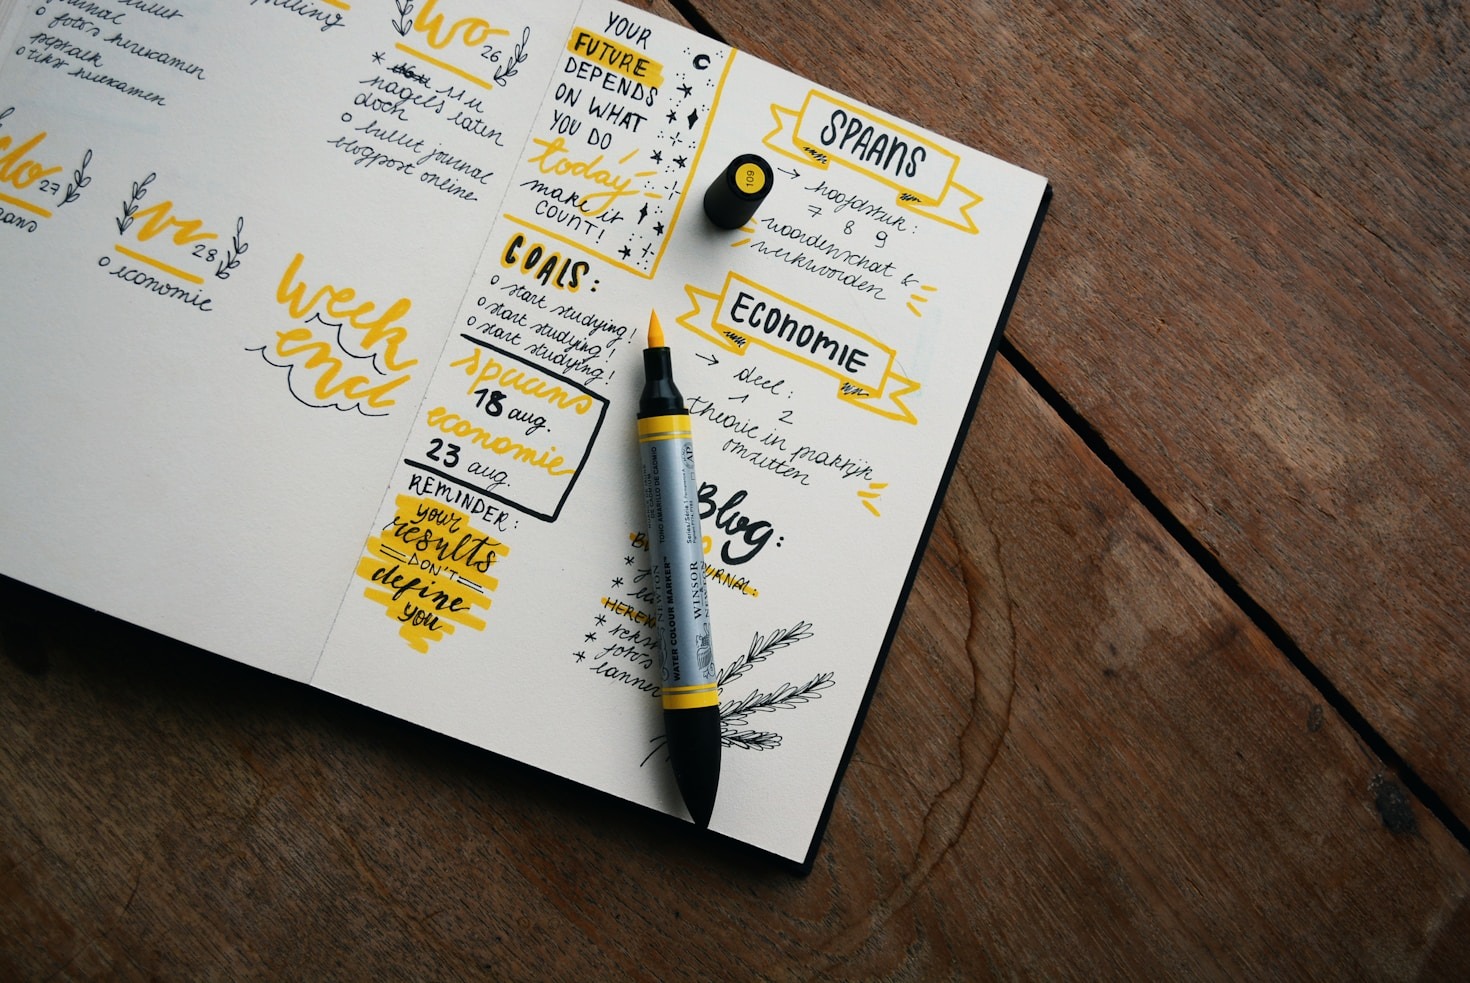 bullet
journal
o foto's herexamen
o tekst herexamen
WO
26
* 11 u
nagels laten
doen
o bullet journal
blogpost online
do
27
vr
28
o economie
week
end
YOUR
FUTURE
DEPENDS
ON WHAT
YOU DO
today
make it
COUNT!
GOALS:
o start studying!
o start studying!
o start studying!
spaans
18 aug.
economie
23 aug.
REMINDER:
your
results
DON'T
define
you
SPAANS
→ hoofdstuk:
7 8 9
woordenschat &
werkwoorden
ECONOMIE
→ deel:
1 2
theorie in praktijk
omzetten
Blog:
URNAL:
HEREX
* tekst
* foto's
* banner
109
WATER COLOUR MARKER™
WINSOR
NEWTON